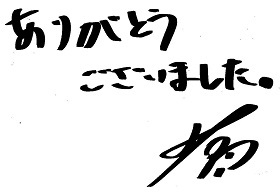 ありがとう
ございました。